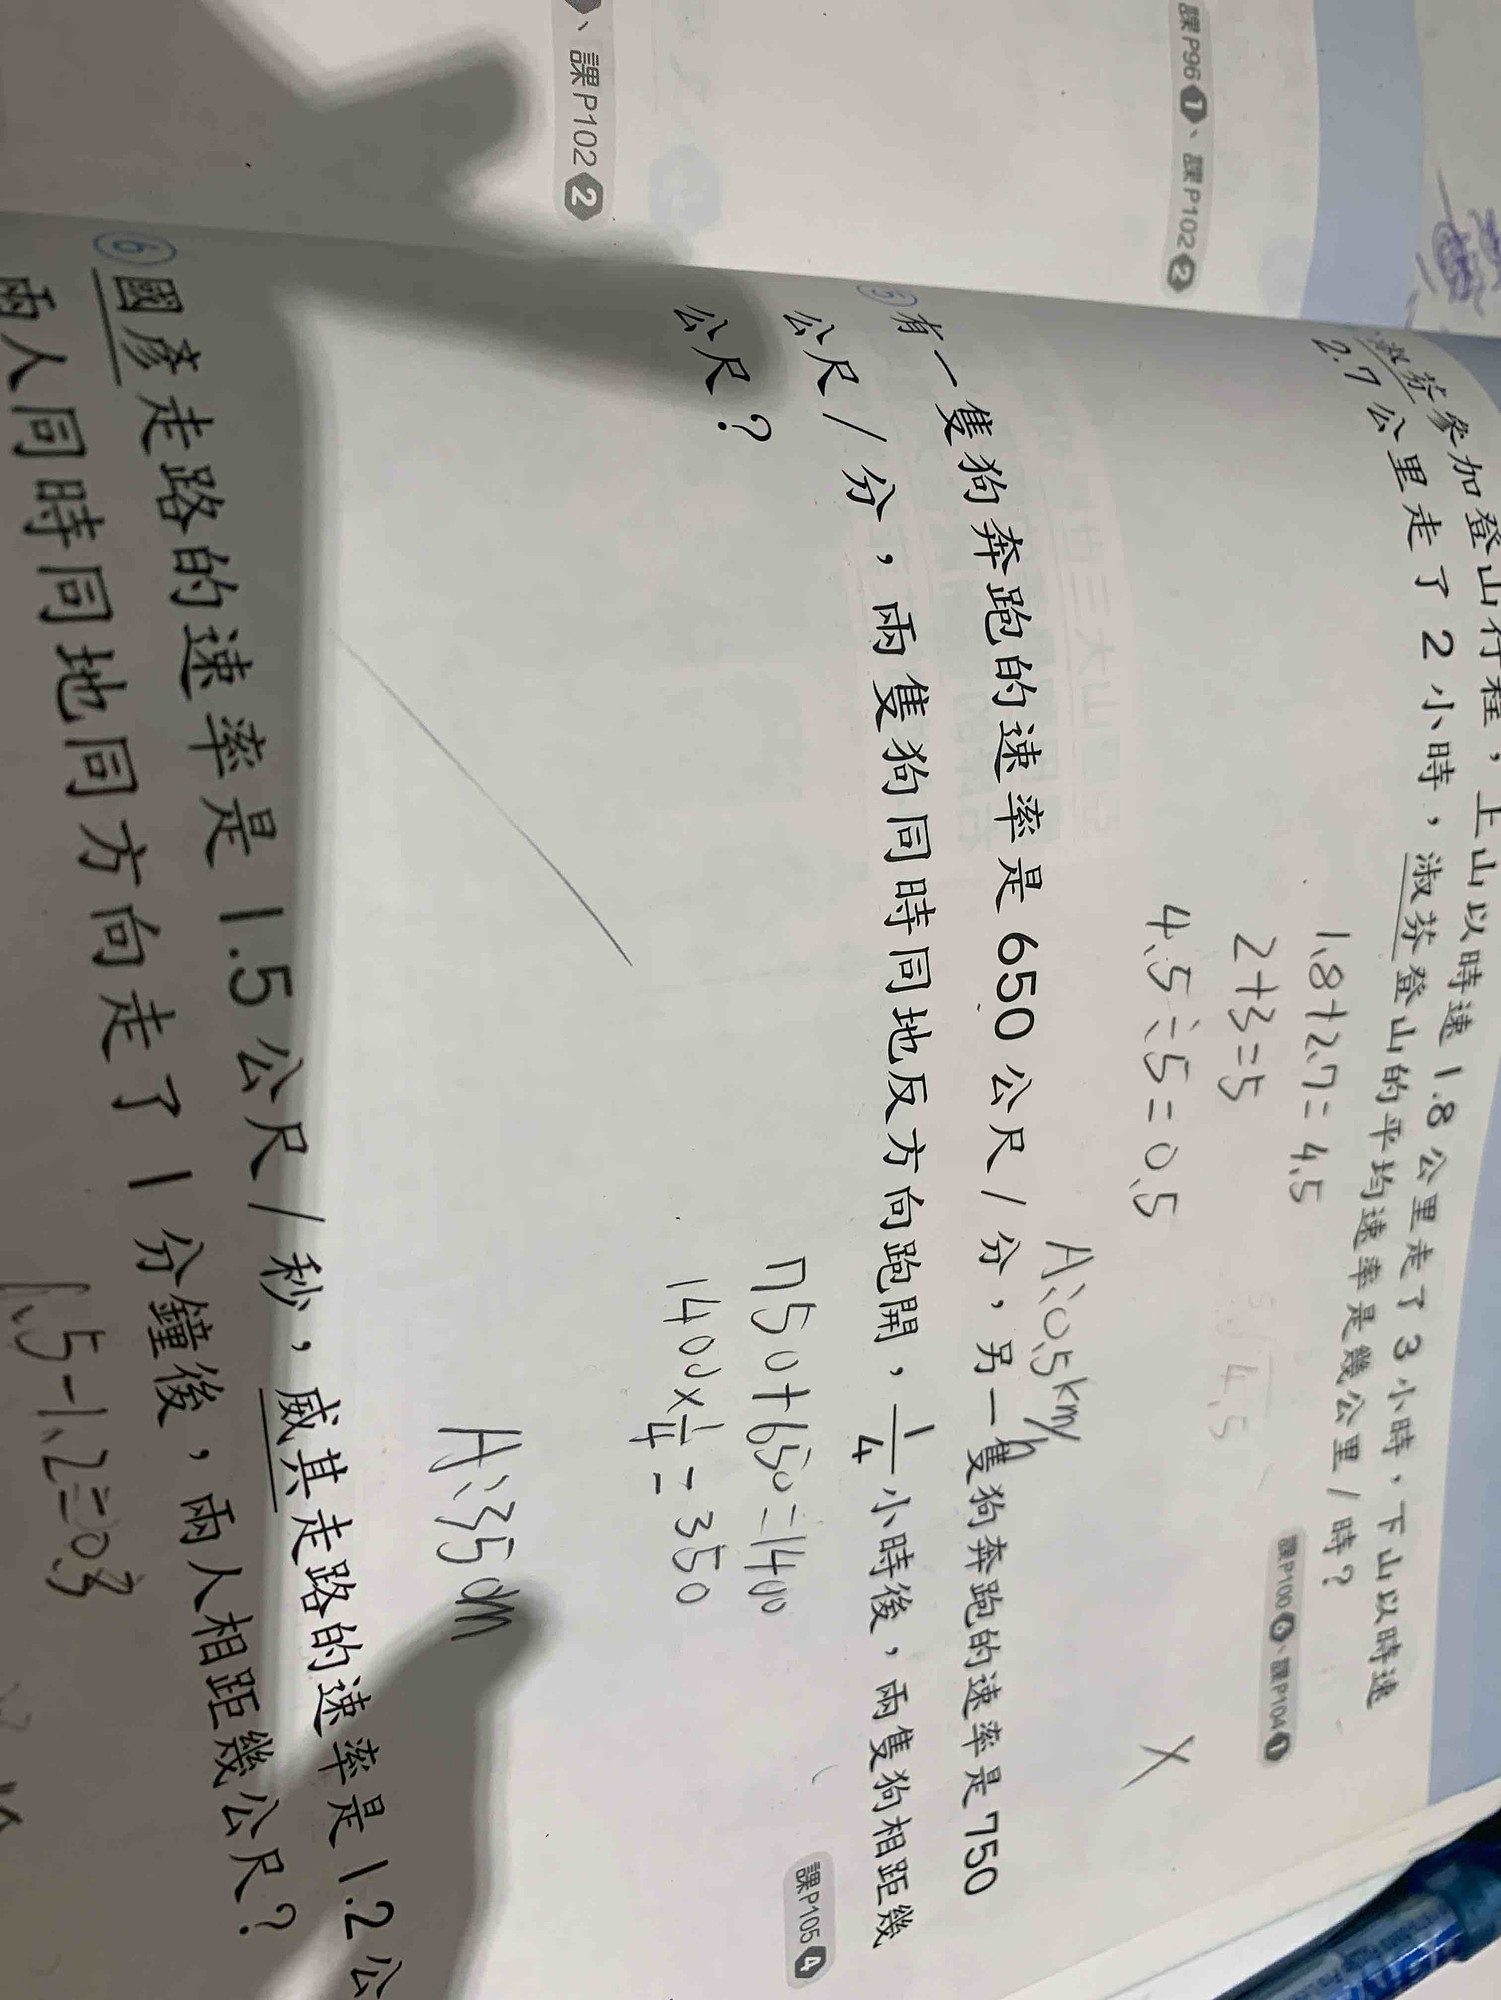 課P96❶、課P102❷
、課P102❷
淑芬參加登山行程，上山以時速1.8公里走了3小時，下山以時速
2.7公里走了2小時，淑芬登山的平均速率是幾公里/時？
課P100❻、課P104❶
1.8+2.7=4.5
2+3=5
4.5÷5=0.5
A:0.5km/h
⑤有一隻狗奔跑的速率是650公尺/分，另一隻狗奔跑的速率是750
公尺/分，兩隻狗同時同地反方向跑開，1/4小時後，兩隻狗相距幾
公尺？
課P105❹
750+650=1400
1400×1/4=350
A:350m
⑥國彥走路的速率是1.5公尺/秒，威其走路的速率是1.2公
兩人同時同地同方向走了1分鐘後，兩人相距幾公尺？
1.5-1.2=0.3